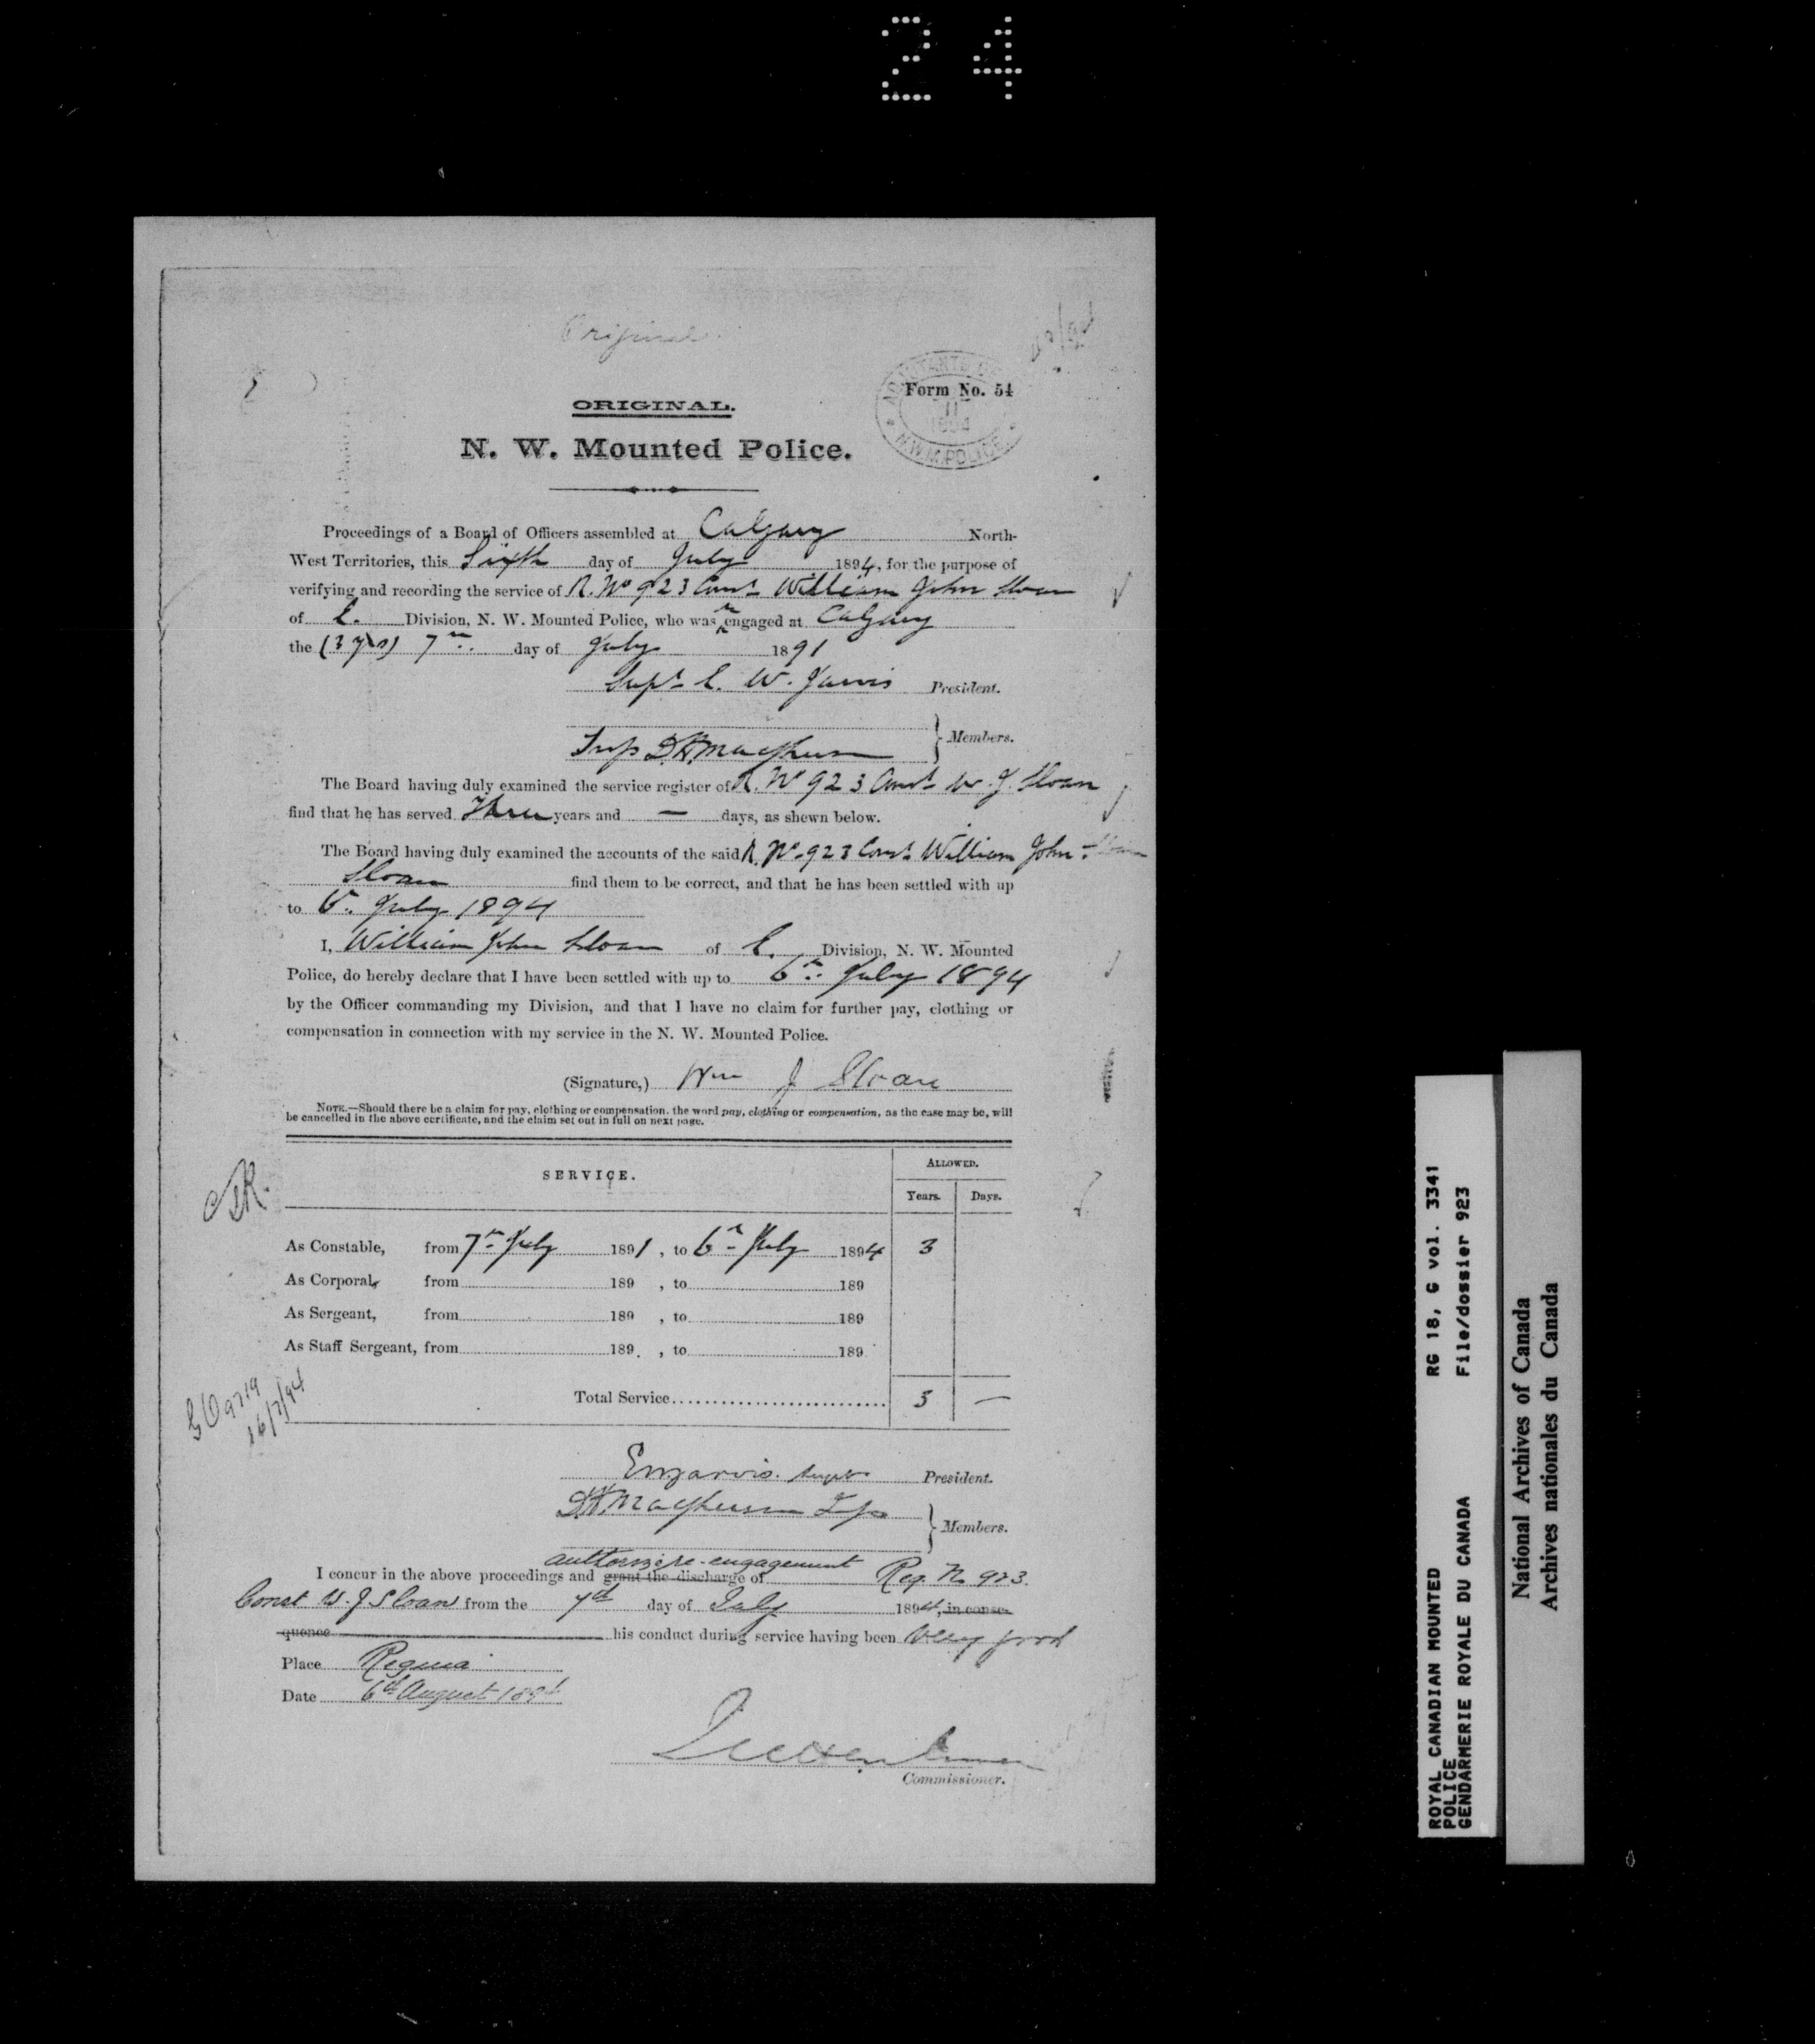 24
Original
Form No. 54
ORIGINAL.
N. W. MOUNTED POLICE
1894
N. W. Mounted Police.
Proceedings of a Board of Officers assembled at Calgary North-
West Territories, this Sixth day of July 1894, for the purpose of
verifying and recording the service of R. No 923 Const William John Sloan
of E. Division, N. W. Mounted Police, who was re engaged at Calgary
the (3 yrs) 7th. day of July 1891
Supt E. W. Jarvis President.
Insp D.H. Macpherson Members.
The Board having duly examined the service register of R. No 923 Const W. J. Sloan
find that he has served Three years and — days, as shewn below.
The Board having duly examined the accounts of the said R. No. 923 Const William John
Sloan find them to be correct, and that he has been settled with up
to 6th. July 1894
I, William John Sloan of E. Division, N. W. Mounted
Police, do hereby declare that I have been settled with up to 6th. July 1894
by the Officer commanding my Division, and that I have no claim for further pay, clothing or
compensation in connection with my service in the N. W. Mounted Police.
(Signature,) Wm J Sloan
NOTE.—Should there be a claim for pay, clothing or compensation, the word pay, clothing or compensation, as the case may be, will
be cancelled in the above certificate, and the claim set out in full on next page.
SERVICE. ALLOWED.
Years. Days.
As Constable, from 7th July 1891, to 6th July 1894 3
As Corporal, from 189 , to 189
As Sergeant, from 189 , to 189
As Staff Sergeant, from 189 , to 189
GO 9719
16/7/94
Total Service 3 —
EWJarvis. Supt. President.
D.H. Macpherson Insp Members.
authorize re-engagement
I concur in the above proceedings and grant the discharge of Reg. No 923.
Const W. J Sloan from the 7th day of July 1894, in conse-
quence his conduct during service having been Very good
Place Regina
Date 6th August 1894
Commissioner.
ROYAL CANADIAN MOUNTED RG 18, G vol. 3341
POLICE
GENDARMERIE ROYALE DU CANADA File/dossier 923
National Archives of Canada
Archives nationales du Canada